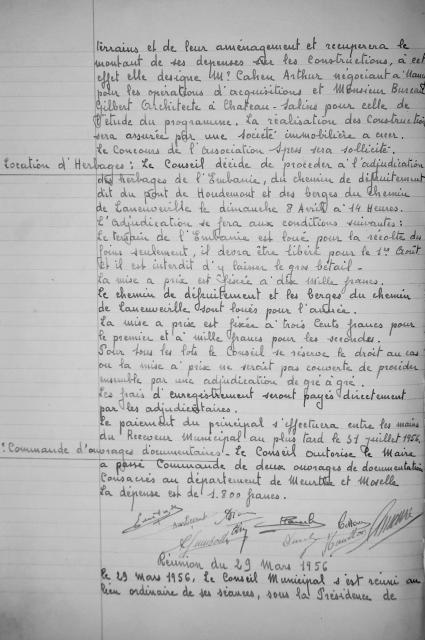 terrains et de leur aménagement et recuperera le
montant de ses depenses sur les Constructions, à cet
effet elle designe Mr Cahen Arthur négociant à
pour les opérations d'acquisitions et Monsieur
Gilbert Architecte à Chateau-Salins pour celle de
l'étude du programme. La réalisation des Constructions
sera assurée par une société immobilière a créer.
Le Concours de l'Association sera sollicité.
Location d'Herbages: Le Conseil décide de procéder à l'adjudication
des herbages de l'Embanie, du chemin de défruitement
dit du pont de Houdemont et des berges du Chemin
de Laneuveville le dimanche 8 Avril à 14 Heures.
L'adjudication se fera aux conditions suivantes:
Le terrain de l'Embanie est loué pour la récolte des
foins seulement, il devra être libéré pour le 1er Août
et il est interdit d'y laisser le gros bétail.
La mise a prix est fixée à dix mille francs.
Le chemin de défruitement et les berges du chemin
de Laneuveville sont loués pour l'année.
La mise a prix est fixée à trois Cents francs pour
le premier et à mille francs pour les secondes.
Pour tous les lots le Conseil se réserve le droit au cas
ou la mise à prix ne serait pas couverte de procéder
ensemble par une adjudication de gré à gré.
Les frais d'enregistrement seront payés directement
par les adjudicataires.
Le paiement du principal s'effectuera entre les mains
du Receveur Municipal au plus tard le 31 juillet 1956.
Commande d'ouvrages documentaires - Le Conseil autorise le Maire
a passé Commande de deux ouvrages de documentation
Consacrés au département de Meurthe et Moselle
La dépense est de 1.800 francs.
Réunion du 29 Mars 1956
Le 29 mars 1956, Le Conseil Municipal s'est réuni au
lieu ordinaire de ses séances, sous la Présidence de